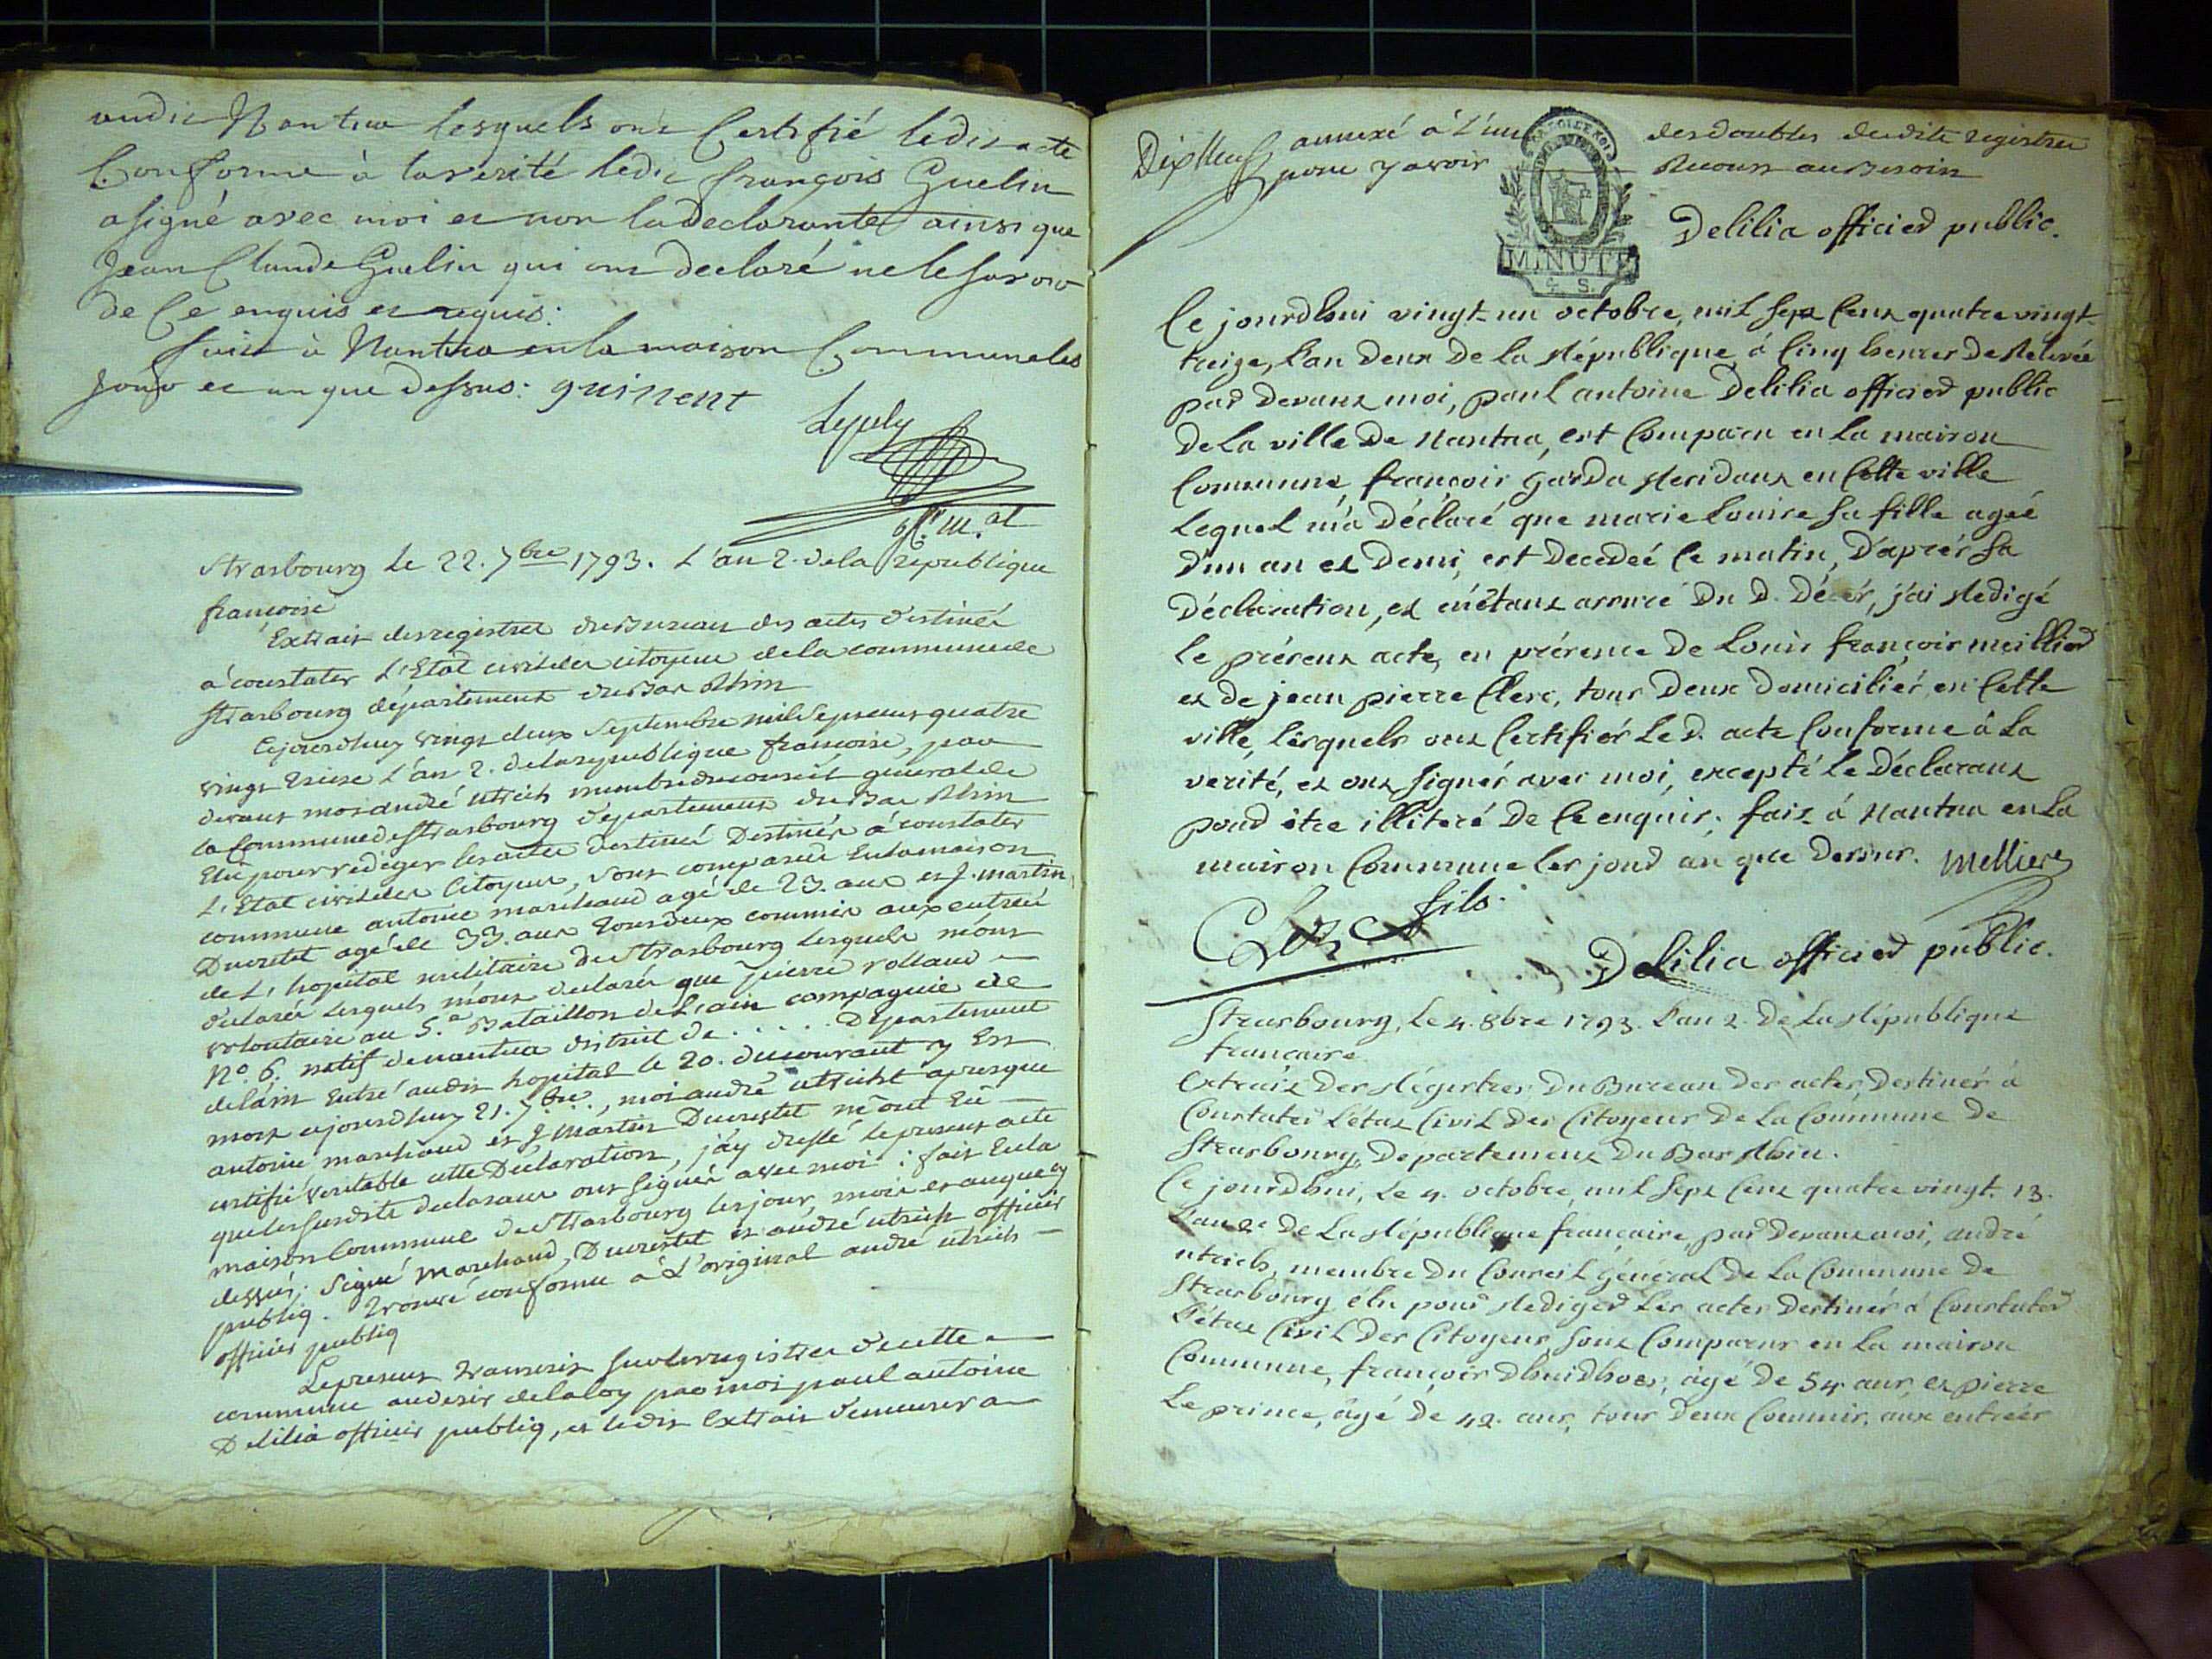 audit Nantua lesquels ont Certifié ledit acte
Conforme à la verité ledit françois Guelin
a signé avec moi et non la declarante ainsi que
Jean Claude Guelin qui ont declaré ne le savoir
de Ce enquis et requis:
fait à Nantua en la maison Commune les
jour et an que dessus: guinent
off. m.al
Strasbourg le 22. 7bre 1793. L'an 2. de la republique
françoise
Extrait des registres du Bureau des actes destinés
à constater L'Etat civil des citoyens de la commune de
Strasbourg département du Bas Rhin
Cejourdhuy vingt deux Septembre mil Sept cent quatre
vingt Treise L'an 2. de la republique françoise, par
devant moi andré utrich membre du conseil general de
la Commune de Strasbourg departement du Bas Rhin
Elu pour rediger les actes destinés Destinés à constater
L'Etat civil des Citoyens, sont comparus En la maison
commune antoine marchand agé de 23. ans et J. martin
Ducretet agé de 33. ans tous deux commis aux entrées
de L'hopital militaire de Strasbourg lesquels m'ont
declarés lesquels m'ont declarés que pierre rolland
volontaire au 5.e Bataillon de L'ain compagnie de
N°. 6. natif de nantua district de . . . . . Departement
de lain Entré audit hopital le 20. du courant y Est
mort cejourdhuy 21. 7bre . ., moi andré utricht apresque
antoine marchand et J. Martin Ducretet m'ont Eû
certifié veritable cette Declaration, j'ay dressé le present acte
que les susdits declarans ont Signés avec moi : fait En la
maison Commune de Strasbourg les jour, mois et an que cy
dessus; Signé Marchand, Ducretet et andré utrich officier
publiq. Trouvé conforme à L'original andré utrich
officier publiq
Le present transcrit sur les registres de cette
commune au desir de la loy par moi paul antoine
Delilia officier publiq, et ledit Extrait demeurera
Dix Neuf
annexé à l'un des doubles desdits registres
pour y avoir Recours au Besoin
LA LOI LE ROI
MINUTE
4. S.
Delilia officier public.
Ce jourdhui vingt-un octobre, mil sept Cent quatre vingt-
treize, L'an deux de la République, à Cinq heures de Relevée
par devant moi, paul antoine Delilia officier public
de La ville de Nantua, est Comparu en La maison
Commune, françois garda Residant en Cette ville
Lequel m'a Déclaré que marie Louise sa fille agée
d'un an et Demi, est Decedeé Ce matin, D'après sa
Déclaration, et m'étant assuré Du D. Décès, j'ai Redigé
Le présent acte, en présence De Louis françois meillier
et de jean pierre Clerc, tous Deux Domiciliés, en Cette
ville, Lesquels ont Certifiés Le D. acte Conforme à La
verité, et ont signés avec moi, excepté Le Déclarant
pour être illiteré De Ce enquis. fait à Nantua en La
maison Commune Les jour an que Dessus. Mellier
Clerc fils.
Delilia officier public.
Strasbourg, Le 4. 8bre 1793. L'an 2. De La République
francaise.
Extrait Des Régistres Du Bureau Des actes, Destinés à
Constater L'état Civil Des Citoyens De La Commune De
Strasbourg, Departement Du Bas Rhin.
Ce jourdhui, Le 4. octobre mil sept Cent quatre vingt. 13.
L'an 2e De La République francaise, par Devant moi, andré
utrich, membre Du Conseil général De La Commune De
Strasbourg élu pour Rediger Les actes Destinés à Constater
L'état Civil Des Citoyens, sont Comparus en La maison
Commune, françois, agé De 54 ans, et pierre
Le prince, âgé De 42. ans, tous Deux Commis, aux entrées